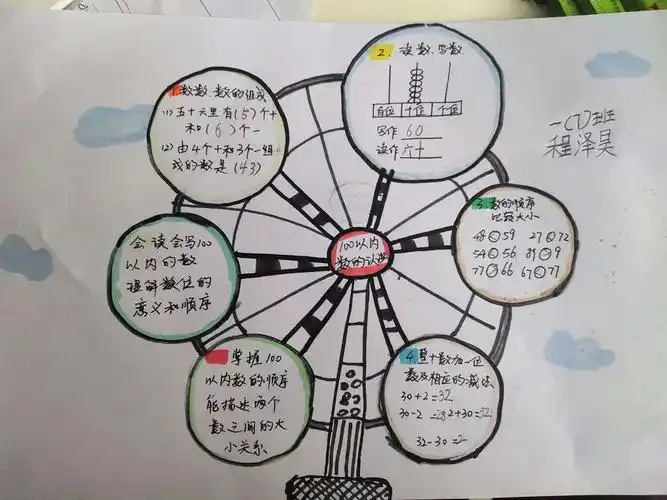 1.数数、数的组成
(1)五十六里有(5)个十
和(6)个一
(2)由4个十和3个一组
成的数是(43)
2.读数、写数
百位 十位 个位
写作 60
读作 六十
一(1)班
程泽昊
3.数的顺序
比较大小
48 59 27 72
54 56 89 9
77 66 67 77
100以内
数的认识
会读会写100
以内的数
理解数位的
意义和顺序
掌握100
以内数的顺序
能描述两个
数之间的大
小关系
4.整十数加一位
数及相应的减法
30+2=32
30-2=28 2+30=32
32-30=2